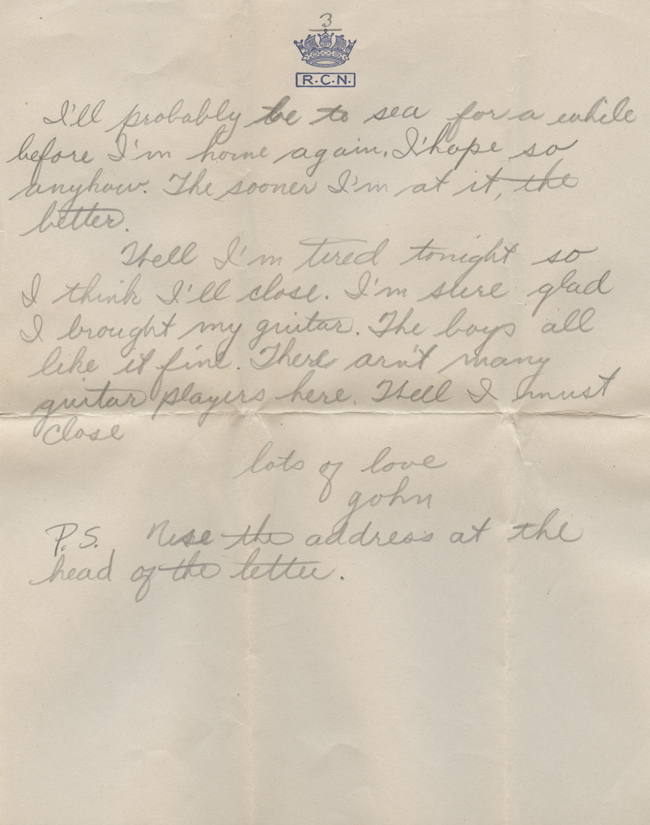 3
R.C.N.
I'll probably be to sea for a while
before I'm home again. I hope so
anyhow. The sooner I'm at it, the
better.
Well I'm tired tonight so
I think I'll close. I'm sure glad
I brought my guitar. The boys all
like it fine. There arn't many
guitar players here. Well I must
close
lots of love
John
P.S. Use the address at the
head of the letter.